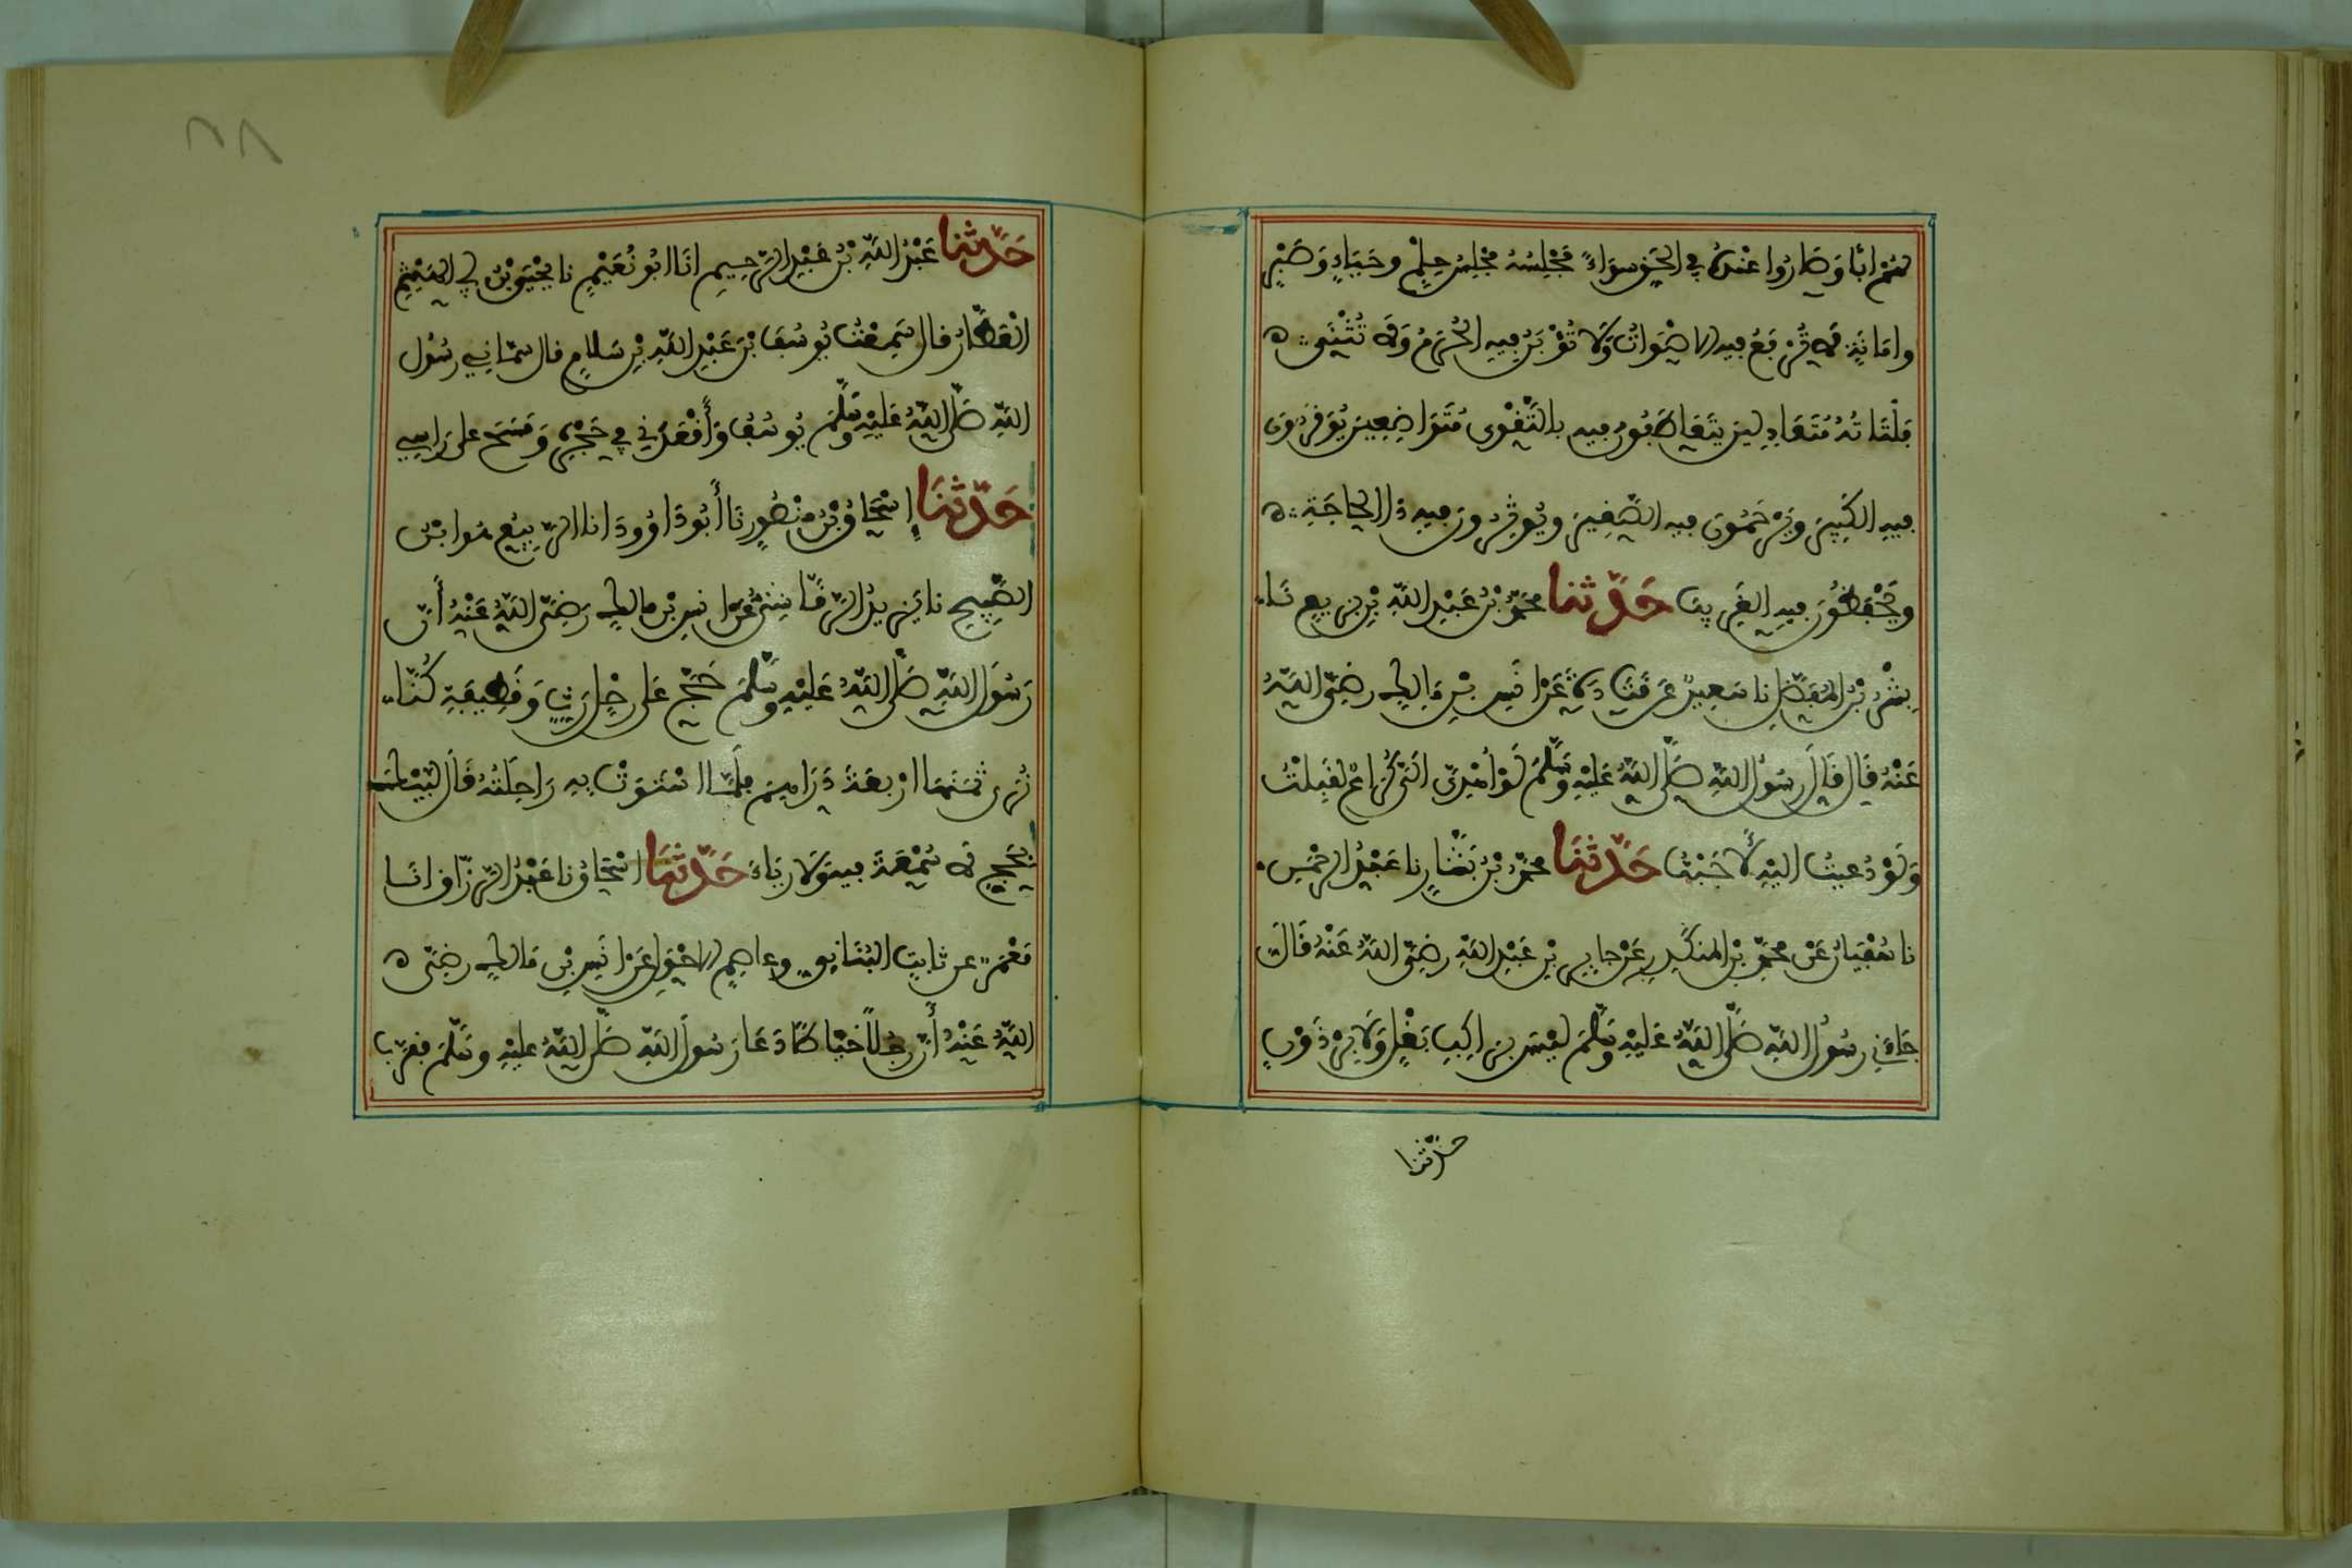 لهم ابا وصاروا عنده في الحق سواء مجلسه مجلس حلم وحياء وصبر
وامانة لا ترفع فيه الاصوات ولا تؤبن فيه الحرم ولا تثنى
فلتاته متعادلين يتعاطبون فيه بالتقوى متواضعين يوقرون
فيه الكبير ويرحمون فيه الصغير ويوثرون فيه ذا الحاجة
ويحفظون فيه الغريب حدثنا محمد بن عبد الله بن بزيع نا
بشر بن المفضل نا سعيد عن قتادة عن انس بن مالك رضي الله
عنه قال قال رسول الله صلى الله عليه وسلم لو اهدي الي كراع لقبلت
ولو دعيت اليه لأجبت حدثنا محمد بن بشار نا عبد الرحمن
نا سفيان عن محمد بن المنكدر عن جابر بن عبد الله رضي الله عنه قال
جاءني رسول الله صلى الله عليه وسلم ليس براكب بغل ولا برذون
حدثنا
٢٨
حدثنا عبد الله بن عبد الرحيم انا ابو نعيم نا يحيى بن ابي الهيثم
العطار قال سمعت يوسف بن عبد الله بن سلام قال سماني رسول
الله صلى الله عليه وسلم يوسف وأقعدني في حجره ومسح على راسي
حدثنا إسحاق بن منصور نا أبو داوود انا الربيع هو ابن
الصبيح نا يزيد الرقاشي عن انس بن مالك رضي الله عنه أن
رسول الله صلى الله عليه وسلم حج على رحل رث وقطيفة كنا
نرى ثمنها اربعة دراهم فلما استوت به راحلته قال لبيك
بحج لا سمعة فيه ولا رياء حدثنا اسحاق نا عبد الرزاق انا
معمر عن ثابت البناني وعاصم الاحول عن انس بن مالك رضي
الله عنه أن رجلا خياطا دعا رسول الله صلى الله عليه وسلم فقرب